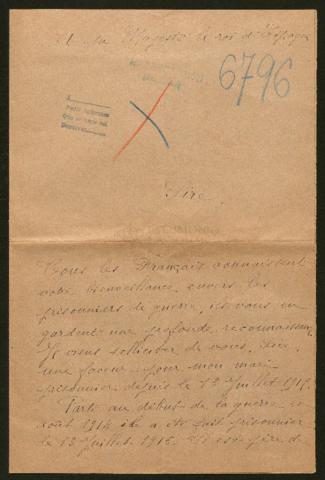 A sa Majesté le roi d'Espagne
6796
Sire,
Tous les Français connaissent
votre bienveillance envers les
prisonniers de guerre, ils vous en
gardent une profonde reconnaissance
Je viens solliciter de vous, Sire,
une faveur pour mon mari
prisonnier depuis le 13 Juillet 1915.
Parti au début de la guerre
août 1914 il a été fait prisonnier
le 13 Juillet 1915. Il est père de